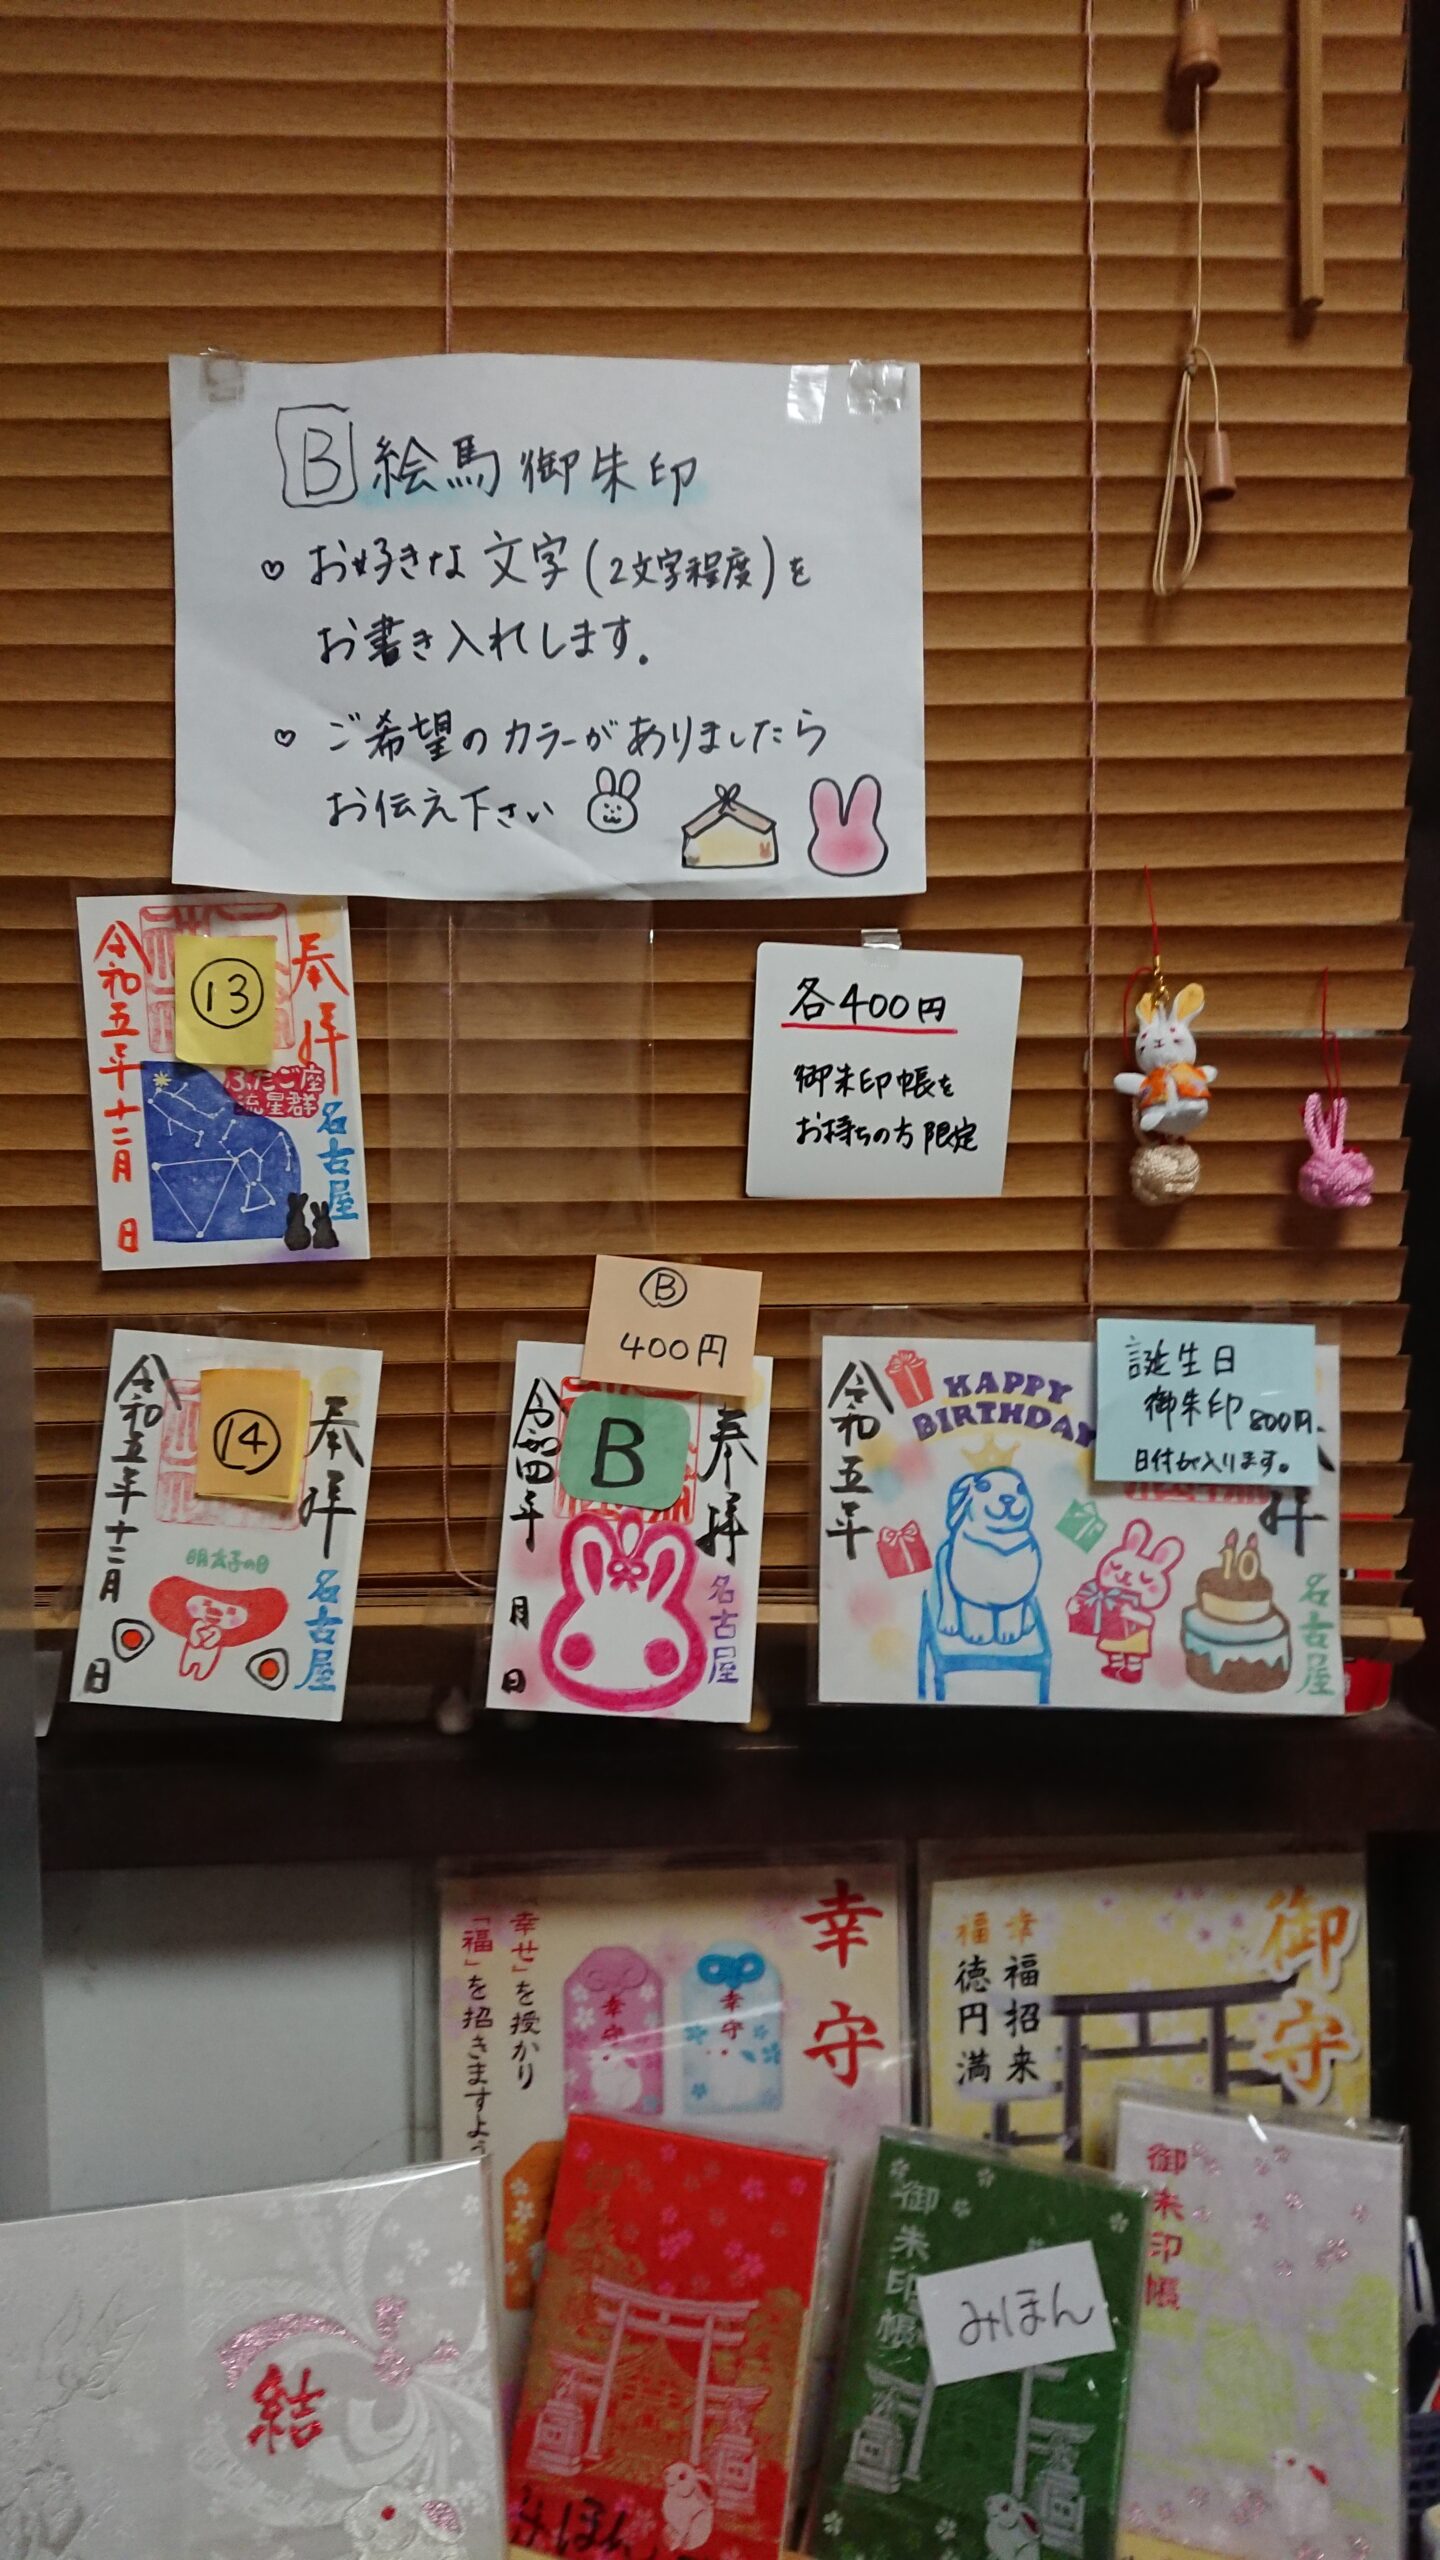 B 絵馬御朱印
♡ お好きな文字(2文字程度)を
お書き入れします。
♡ ご希望のカラーがありましたら
お伝え下さい
奉拝
⑬
令和五年十二月 日
ふたご座
流星群
名古屋
各400円
御朱印帳を
お持ちの方限定
奉拝
⑭
令和五年十二月 日
明太子の日
名古屋
Ⓑ
400円
B
奉拝
令和四年 月 日
名古屋
令和五年
HAPPY
BIRTHDAY
誕生日
御朱印 800円
日付が入ります。
10
名古屋
幸守
幸せ」を授かり
「福」を招きますよう
幸守
幸守
御守
幸福招来
福徳円満
結
みほん
御朱印帳
みほん
御朱印帳